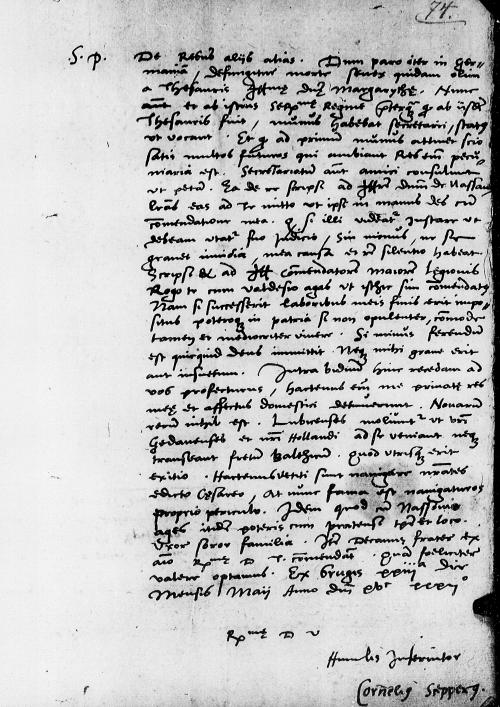 74.
S. P. De Rebus alijs alias. Dum paro iter in Ger-
maniam, defungitur morte senex quidam olim
a Thesauris Illme dne Margarythe. Nunc
aut et ab istius Serme Regine q ab
Thesauris fuit, munus habebat secretarij, status
ut vocant. Et q ad primum munus attinet scio
satis multos futuros qui ambiant Res em pecu-
niaria est. Secretariatum aut amici consulunt
ut petam. Ea de re scripsi ad Illrem dnm de Nassau
lras eas ad te mitto ut ipse in manus des cum
comendatione mea. q si illi videatr Instare ut
debeam utatr suo Judicio, sin minus, ne se
gravet invidia, mea causa et rem silentio habeat.
Scripsi & ad Ill Comendatorem maiorem Legionis
Rogo te cum valdesio agas ut isthic sim comendatus
Nam si successerit laboribus meis finis erit impo-
situs poteroq in patria si non opulenter, comode
tamen et mediocriter vivere. Si minus ferendum
est quicquid deus immittit. Neq mihi grave erit
aut insuetum. Intra biduum hinc recedam ad
vos profecturus, hactenus em me private res
mee et affectus domestici detinuerunt. Novarum
rerum nihil est. Lubicenses moliuntr ut vri
Gedanenses et nri Hollandi ad se veniant neq
transeant fretum balthicum. quod utrisq erit
exitio. Hactenus vetiti sunt navigare nrates
edicto Cesareo, At nunc fama est navigaturos
proprio periculo. Idem quod cu Nassovio
ages itidem poteris cum pratensi tpre et loco.
Uxor soror familia. Itm Decanus frater ex
aio Rme D. T. comendat. quam foeliciter
valere optamus. Ex brugis xxiiia die
Mensis Maij Anno dni xvc xxxijo
Rme D V
Humilis Inservitor
Cornelius Sepperus.